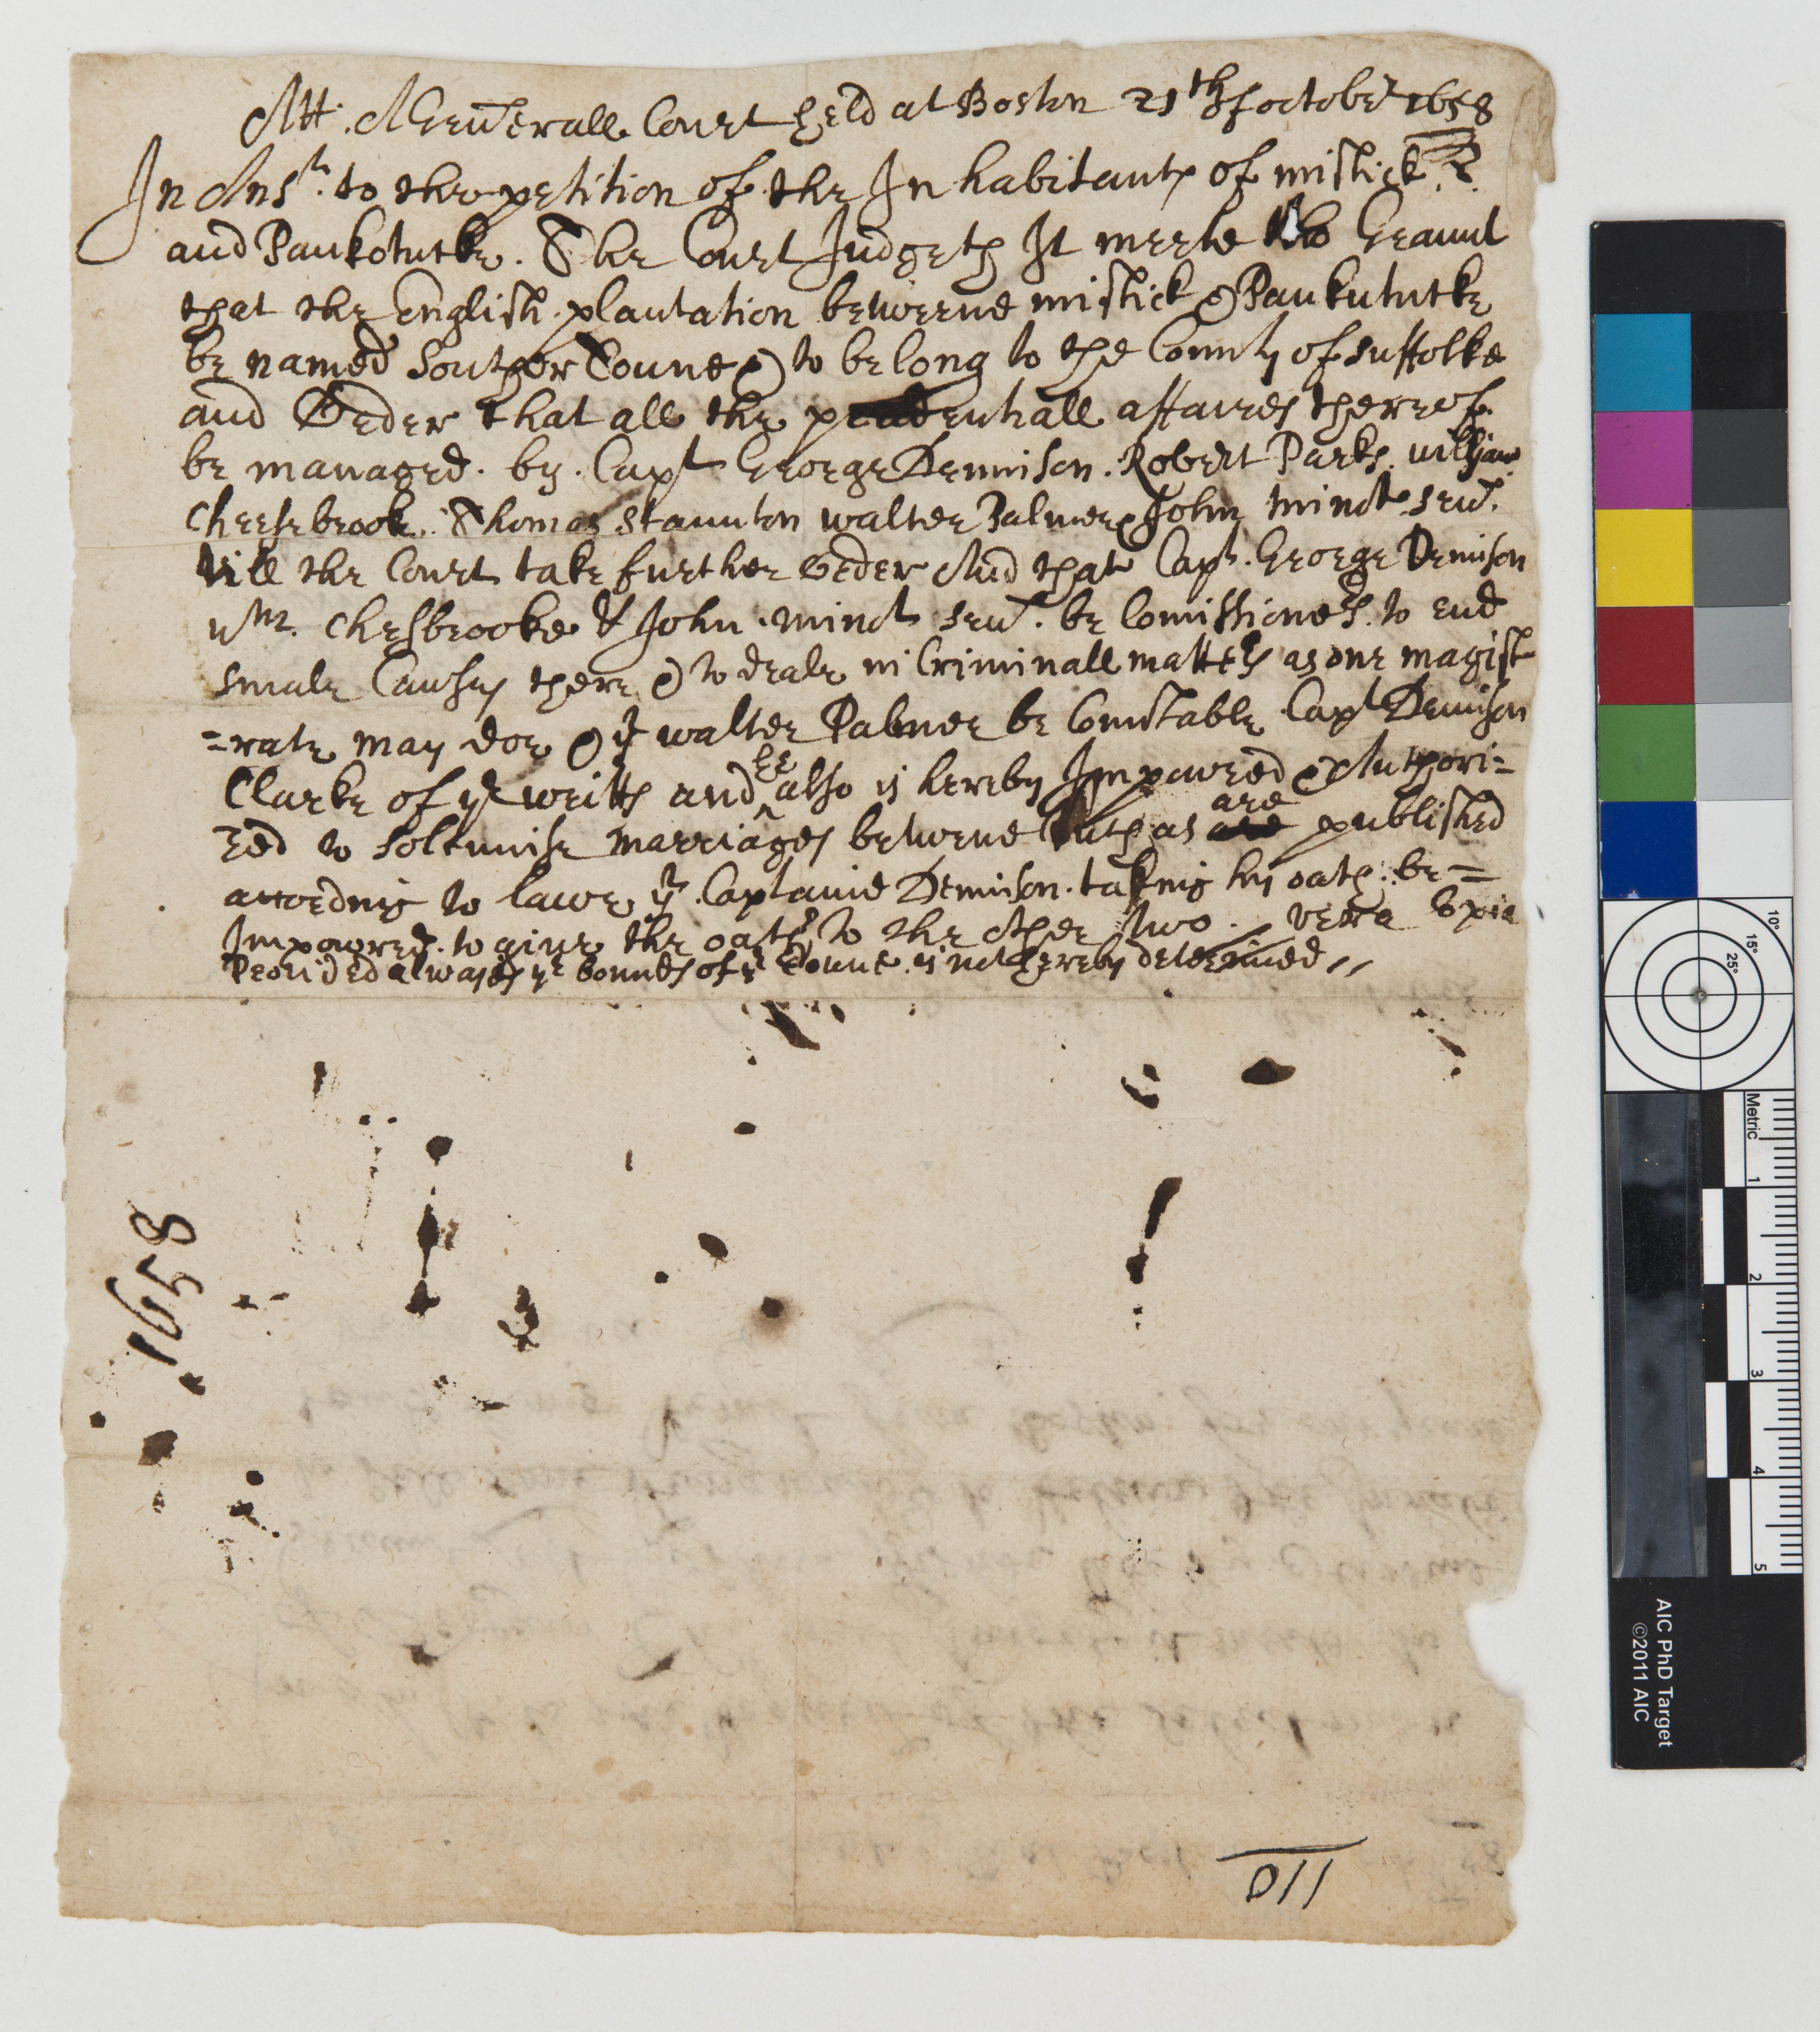 Att. A Generall Court held at Boston 21th of october 1658
In Ansr. to the petition of the Inhabitants of mistick
and Paukotucke. The Court Judgeth It meete to Graunt
that the English plantation betweene mistick & Paukutucke
be named Souther Towne & to belong to the County of suffolke
and Order that all the prudentiall affaires thereof
be managed. by. Capt George Dennison. Robert Parke. william
Cheesebrooke. Thomas Staunton walter Palmer & John minot. senr.
till the Court take further Order And that Capt. George Denison
Mr. Chesbrooke & John. minot senr. be Comissioners. to end
smale Causes there & to deale in Criminall matters as one magist
=rate may doe & yt walter Palmer be Constable Capt Denison
Clarke of ye writts and he also is hereby Impowred & Authori=
zed to solemnise marriages betweene such as are are published
according to lawe yt. Captaine Denison. taking his oath: be=
Impowred. to give the oaths to the other two. vera Copia
Provided alwayes ye bounds of ye Towne is not hereby determined //
1658
110